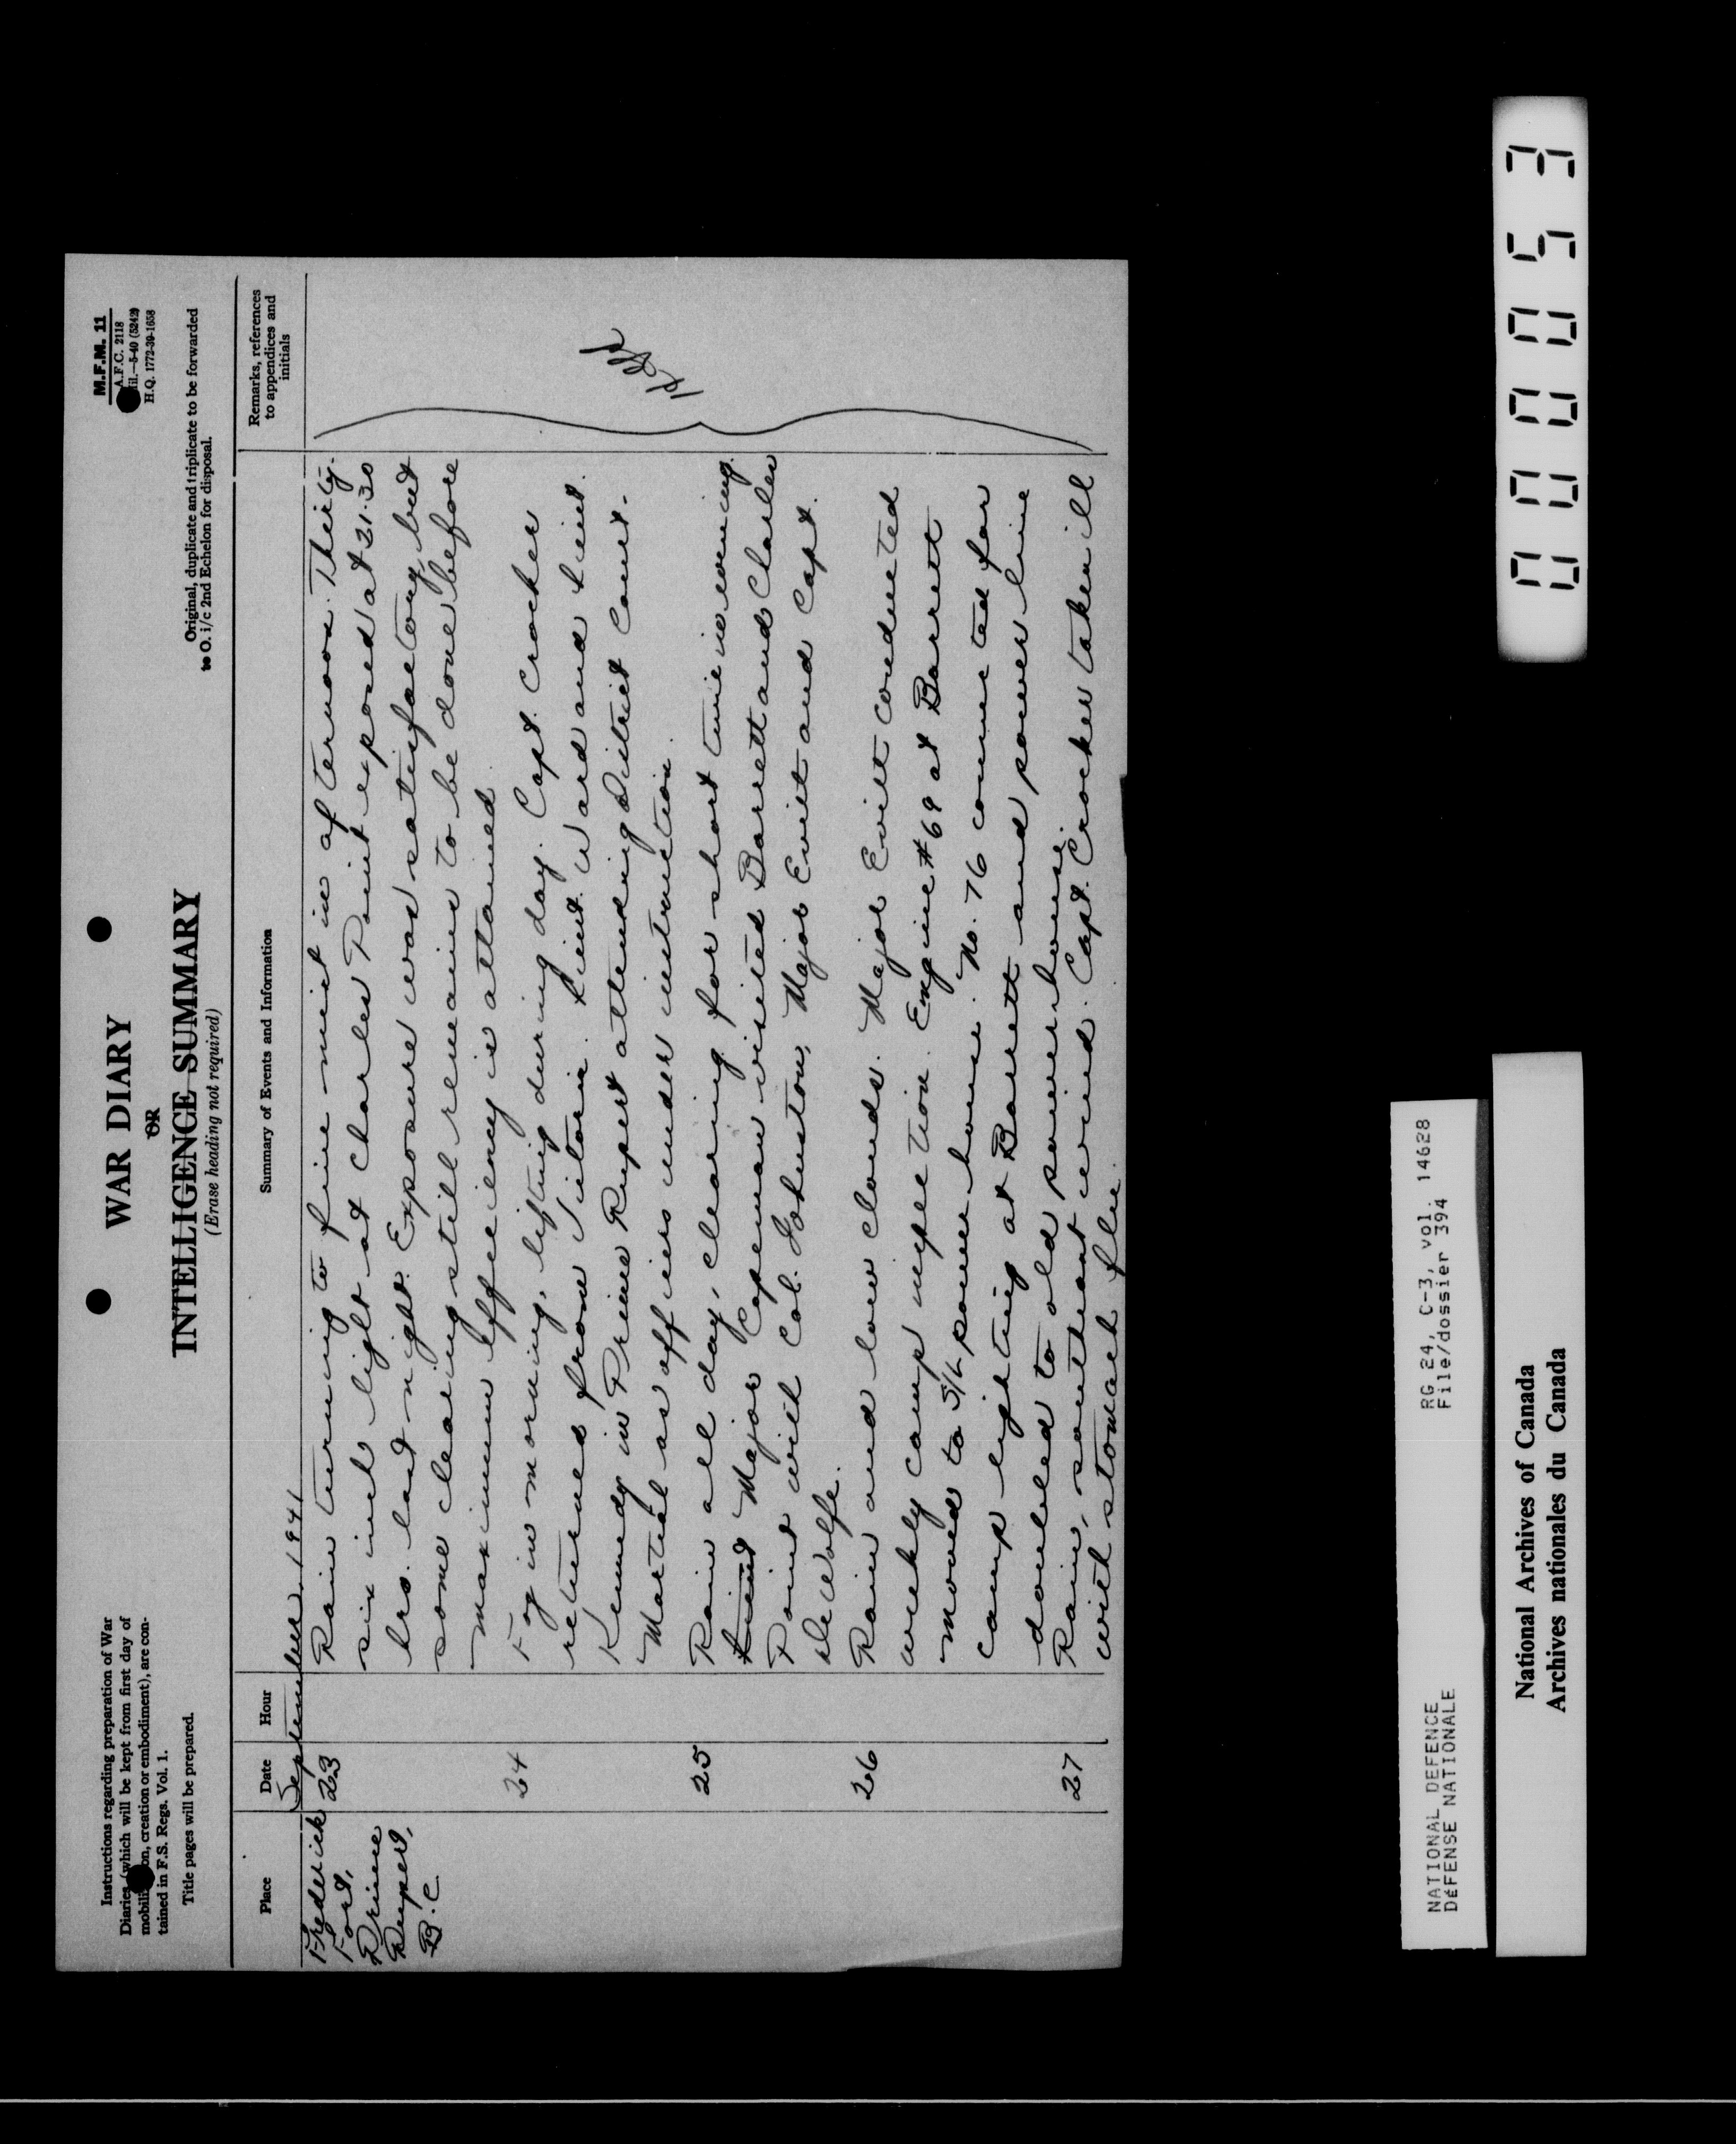 Instructions regarding preparation of War
Diaries (which will be kept from first day of
mobilization, creation or embodiment), are con-
tained in F.S. Regs. Vol. 1.
Title pages will be prepared.
WAR DIARY
OR
INTELLIGENCE SUMMARY
(Erase heading not required)
M.F.M. 11
A.F.C. 2118
Mil.—5-40 (5242)
H.Q. 1772-39-1658
Original, duplicate and triplicate to be forwarded
to O. i/c 2nd Echelon for disposal.
Place Date Hour Summary of Events and Information Remarks, references
to appendices and
initials
September 1941
Frederick
Fort,
Prince
Rupert,
B.C.
23 Rain turning to fine mist in afternoon. Thirty-
six inch light at Charles Point exposed at 21.30
hrs. last night. Exposure was satisfactory, but
some clearing still remains to be done before
maximum efficiency is attained.
24 Fog in morning, lifting during day. Capt. Crocker
returned from Victoria. Lieut. Ward and Lieut.
Kennedy in Prince Rupert attending District Court-
Martial as officers under instruction.
25 Rain all day, clearing for short time in evening.
Lieut Major Capeman visited Barrett and Charles
Point with Col. Johnston, Major Evilt and Capt.
DeWolfe.
26 Rain and low clouds. Major Evilt conducted
weekly camp inspection. Engine #69 at Barrett
moved to S/L power house. No. 76 connected for
camp lighting at Barrett and power line
doubled to old power house.
27 Rain, southeast wind. Capt. Crocker taken ill
with stomach flu.
000053
NATIONAL DEFENCE RG 24, C-3, vol. 14628
DÉFENSE NATIONALE File/dossier 394
National Archives of Canada
Archives nationales du Canada